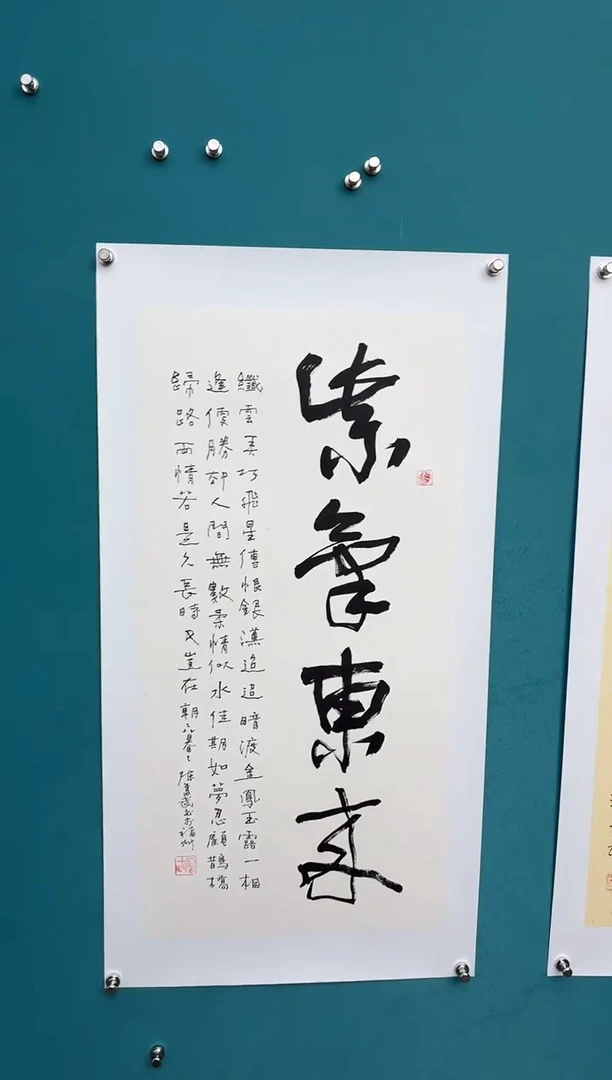 紫氣東來
纖雲弄巧飛星傳恨銀漢迢迢暗渡金鳳玉露一相
逢便勝却人間無數柔情似水佳期如夢忍顧鵲橋
歸路兩情若是久長時又豈在朝々暮々